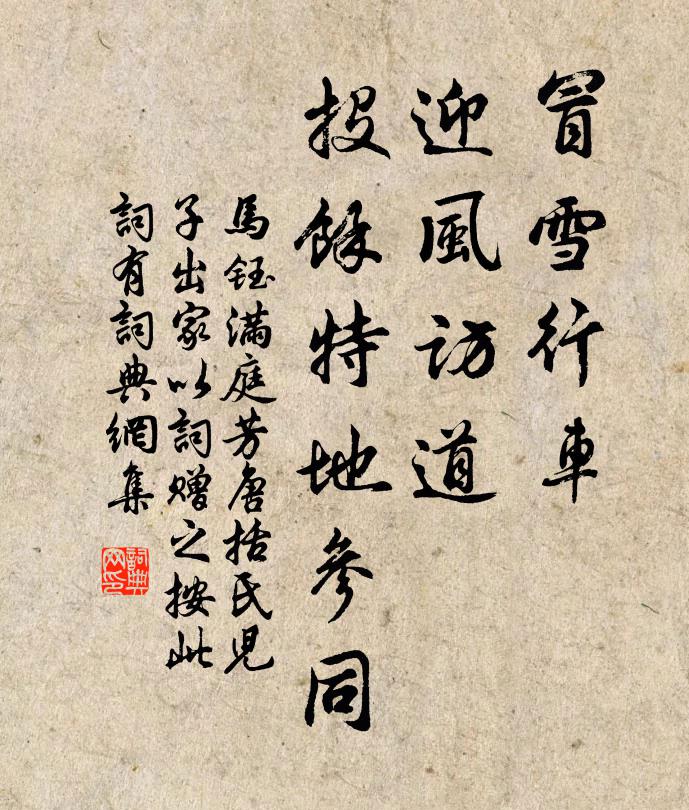 冒雪行車
迎風訪道
投餘特地參同
馬鈺滿庭芳唐括氏兒
子出家以詞贈之按此
詞有詞典網集
詞典
网印